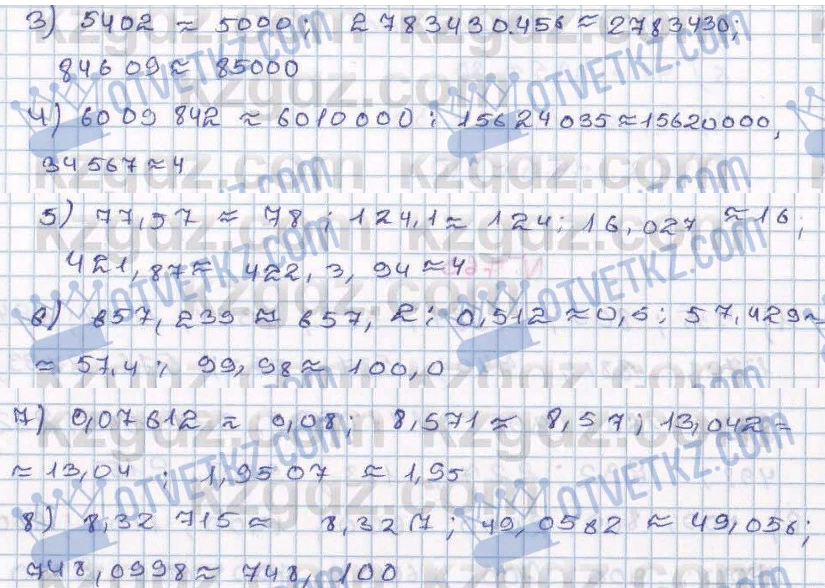 3) 5402 ≈ 5000; 2783430.456 ≈ 2783430;
84609 ≈ 85000
4) 6009842 ≈ 6010000; 15624035 ≈ 15620000,
34567 ≈ 4
5) 77,57 ≈ 78; 124,1 ≈ 124; 16,027 ≈ 16;
421,87 ≈ 422, 3,94 ≈ 4
6) 657,239 ≈ 657,2; 0,512 ≈ 0,5; 57,429 ≈
≈ 57,4; 99,98 ≈ 100,0
7) 0,07612 ≈ 0,08; 8,571 ≈ 8,57; 13,042 =
≈ 13,04; 1,9507 ≈ 1,95
8) 8,32715 ≈ 8,327; 49,0582 ≈ 49,058;
748,0998 ≈ 748,100
kzgdz.com
OTVETKZ.COM